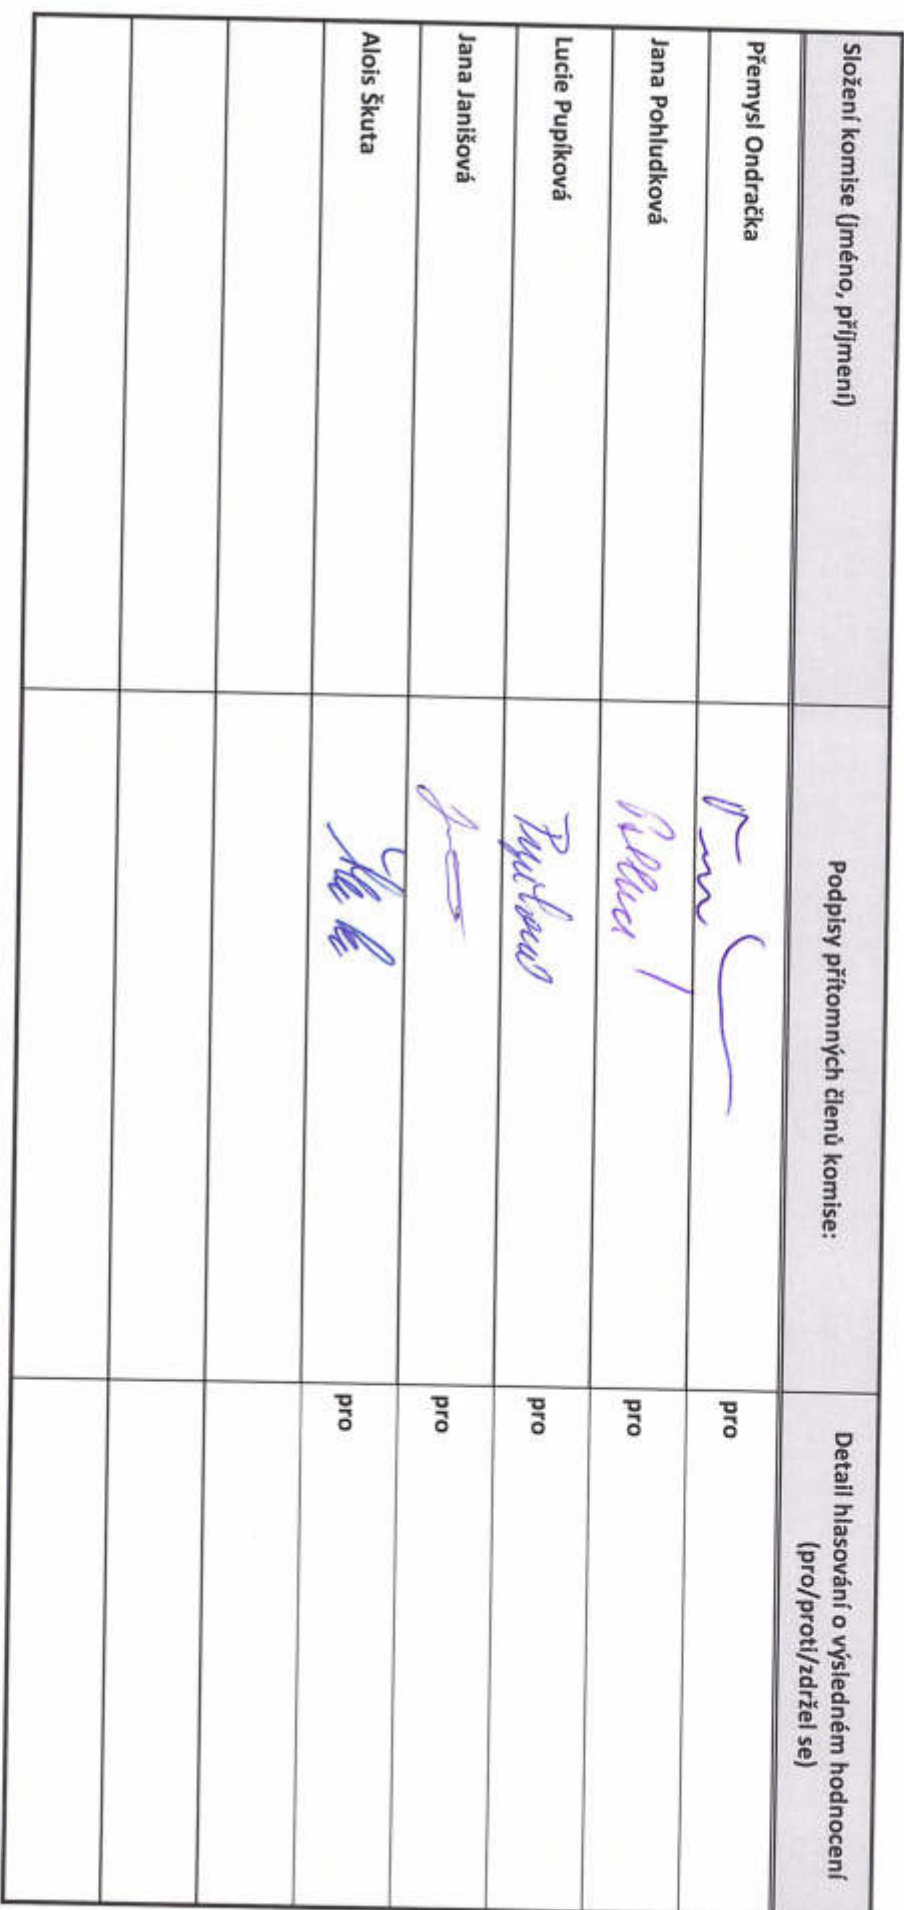 Složení komise (jméno, příjmení)
Podpisy přítomných členů komise:
Detail hlasování o výsledném hodnocení
(pro/proti/zdržel se)
Přemysl Ondračka
pro
Jana Pohludková
pro
Lucie Pupíková
pro
Jana Janišová
pro
Alois Škuta
pro